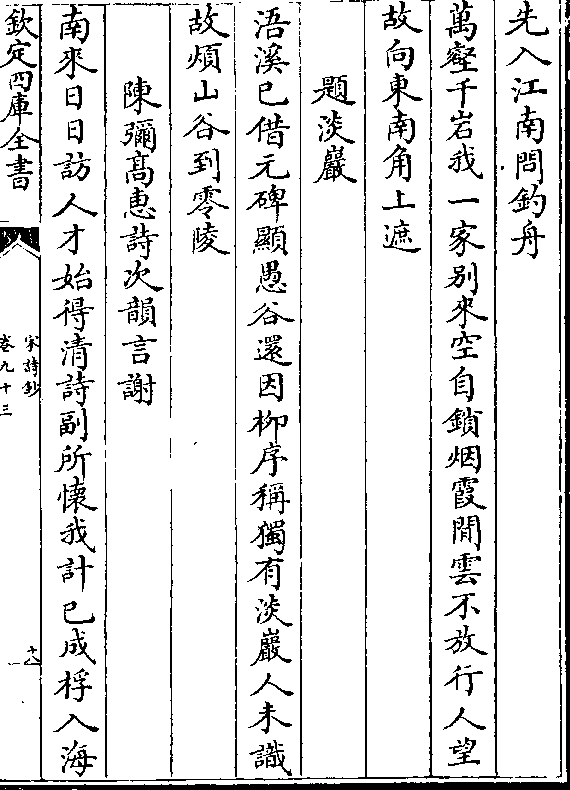 先入江南問釣舟
萬壑千岩我一家别來空自鎖烟霞閒雲不放行人望
故向東南角上遮
題淡巖
浯溪已借元碑顯愚谷還因柳序稱獨有淡巖人未識
故煩山谷到零陵
陳彌髙惠詩次韻言謝
南來日日訪人才始得清詩副所懷我計已成桴入海
欽定四庫全書
宋詩鈔
卷九十三
十八